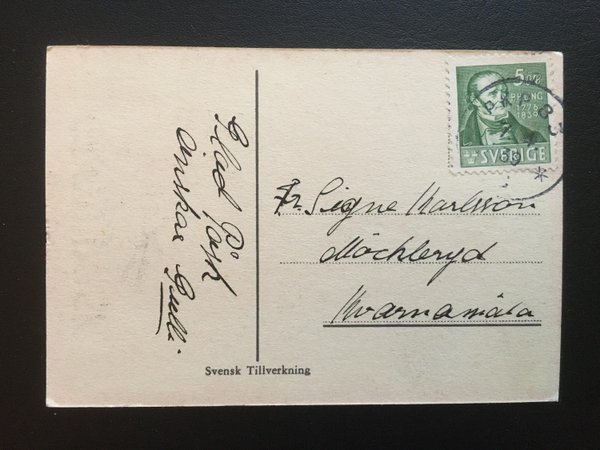 Glad Påsk
önskar Gulli
5 öre
P H LING
1776
1839
SVERIGE
Fr. Signe Karlsson
Möckleryd
Kvarnamåla
Svensk Tillverkning